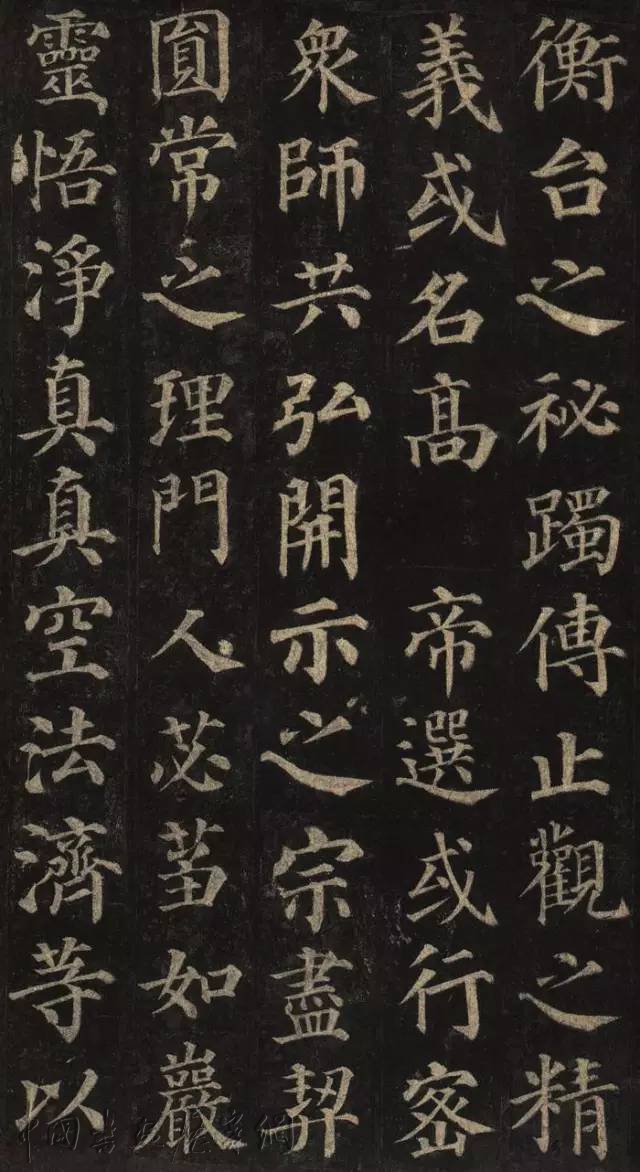 衡台之祕躅傳止觀之精
義或名高 帝選或行密
衆師共弘開示之宗盡契
圓常之理門人苾茤如巖
靈悟淨真真空法濟等以